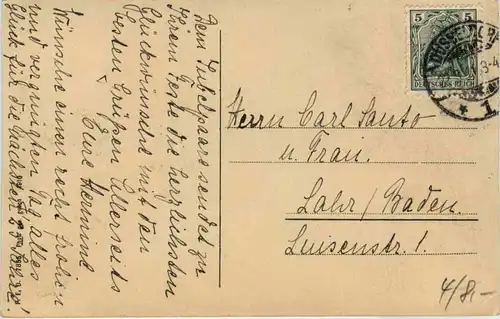 Dem Jubelpaare sendet zu
Ihrem Feste die herzlichsten
Glückwünsche mit den
besten Grüßen Allerseits
Eure Hermine
Wünsche einen recht frohen
und vergnügten Tag, alles
Glück für die nächsten 25 Jahre!
5 5
DEUTSCHES REICH
1
Herrn Carl Santo
u. Frau.
Lahr/Baden.
Luisenstr. 1.
4/8,-